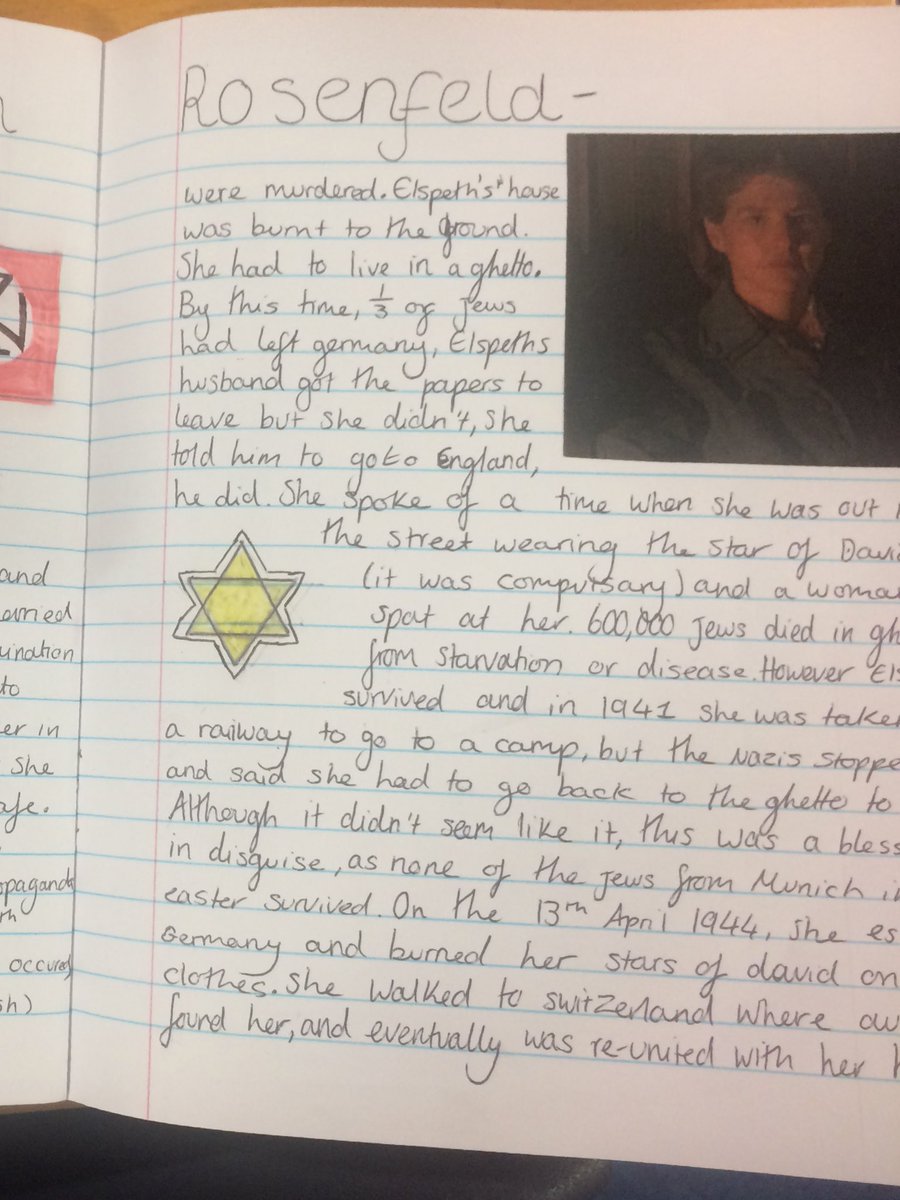 Rosenfeld-
were murdered. Elspeth's house
was burnt to the ground.
She had to live in a ghetto.
By this time, 1/3 of Jews
had left germany, Elspeths
husband got the papers to
leave but she didn't, she
told him to go to England,
he did. She spoke of a time when she was out
the street wearing the star of Davi
(it was compulsary) and a woma
spat at her. 600,000 Jews died in gh
from starvation or disease. However Els
survived and in 1941 she was taken
a railway to go to a camp, but the Nazis stoppe
and said she had to go back to the ghetto to
Although it didn't seem like it, this was a bless
in disguise, as none of the Jews from Munich i
easter survived. On the 13th April 1944, she es
Germany and burned her stars of david on
clothes. She walked to switzerland where
found her, and eventually was re-united with her h
and
arried
unation
to
er in
She
afe.
opaganda
rth
occured
sh)